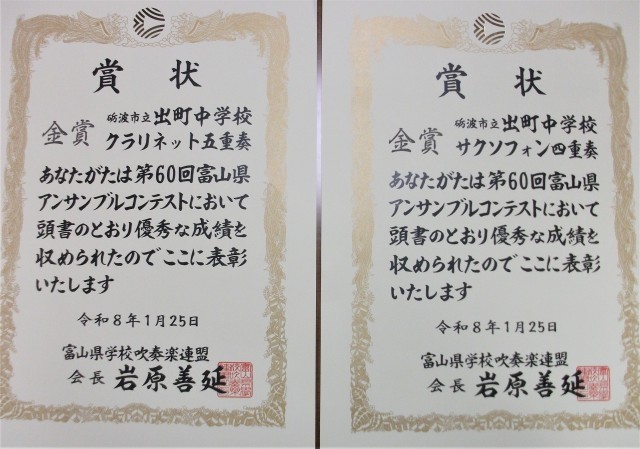 賞状
砺波市立出町中学校
金賞 クラリネット五重奏
あなたがたは第60回富山県
アンサンブルコンテストにおいて
頭書のとおり優秀な成績を
収められたのでここに表彰
いたします
令和8年1月25日
富山県学校吹奏楽連盟
会長 岩原善延
賞状
砺波市立出町中学校
金賞 サクソフォン四重奏
あなたがたは第60回富山県
アンサンブルコンテストにおいて
頭書のとおり優秀な成績を
収められたのでここに表彰
いたします
令和8年1月25日
富山県学校吹奏楽連盟
会長 岩原善延